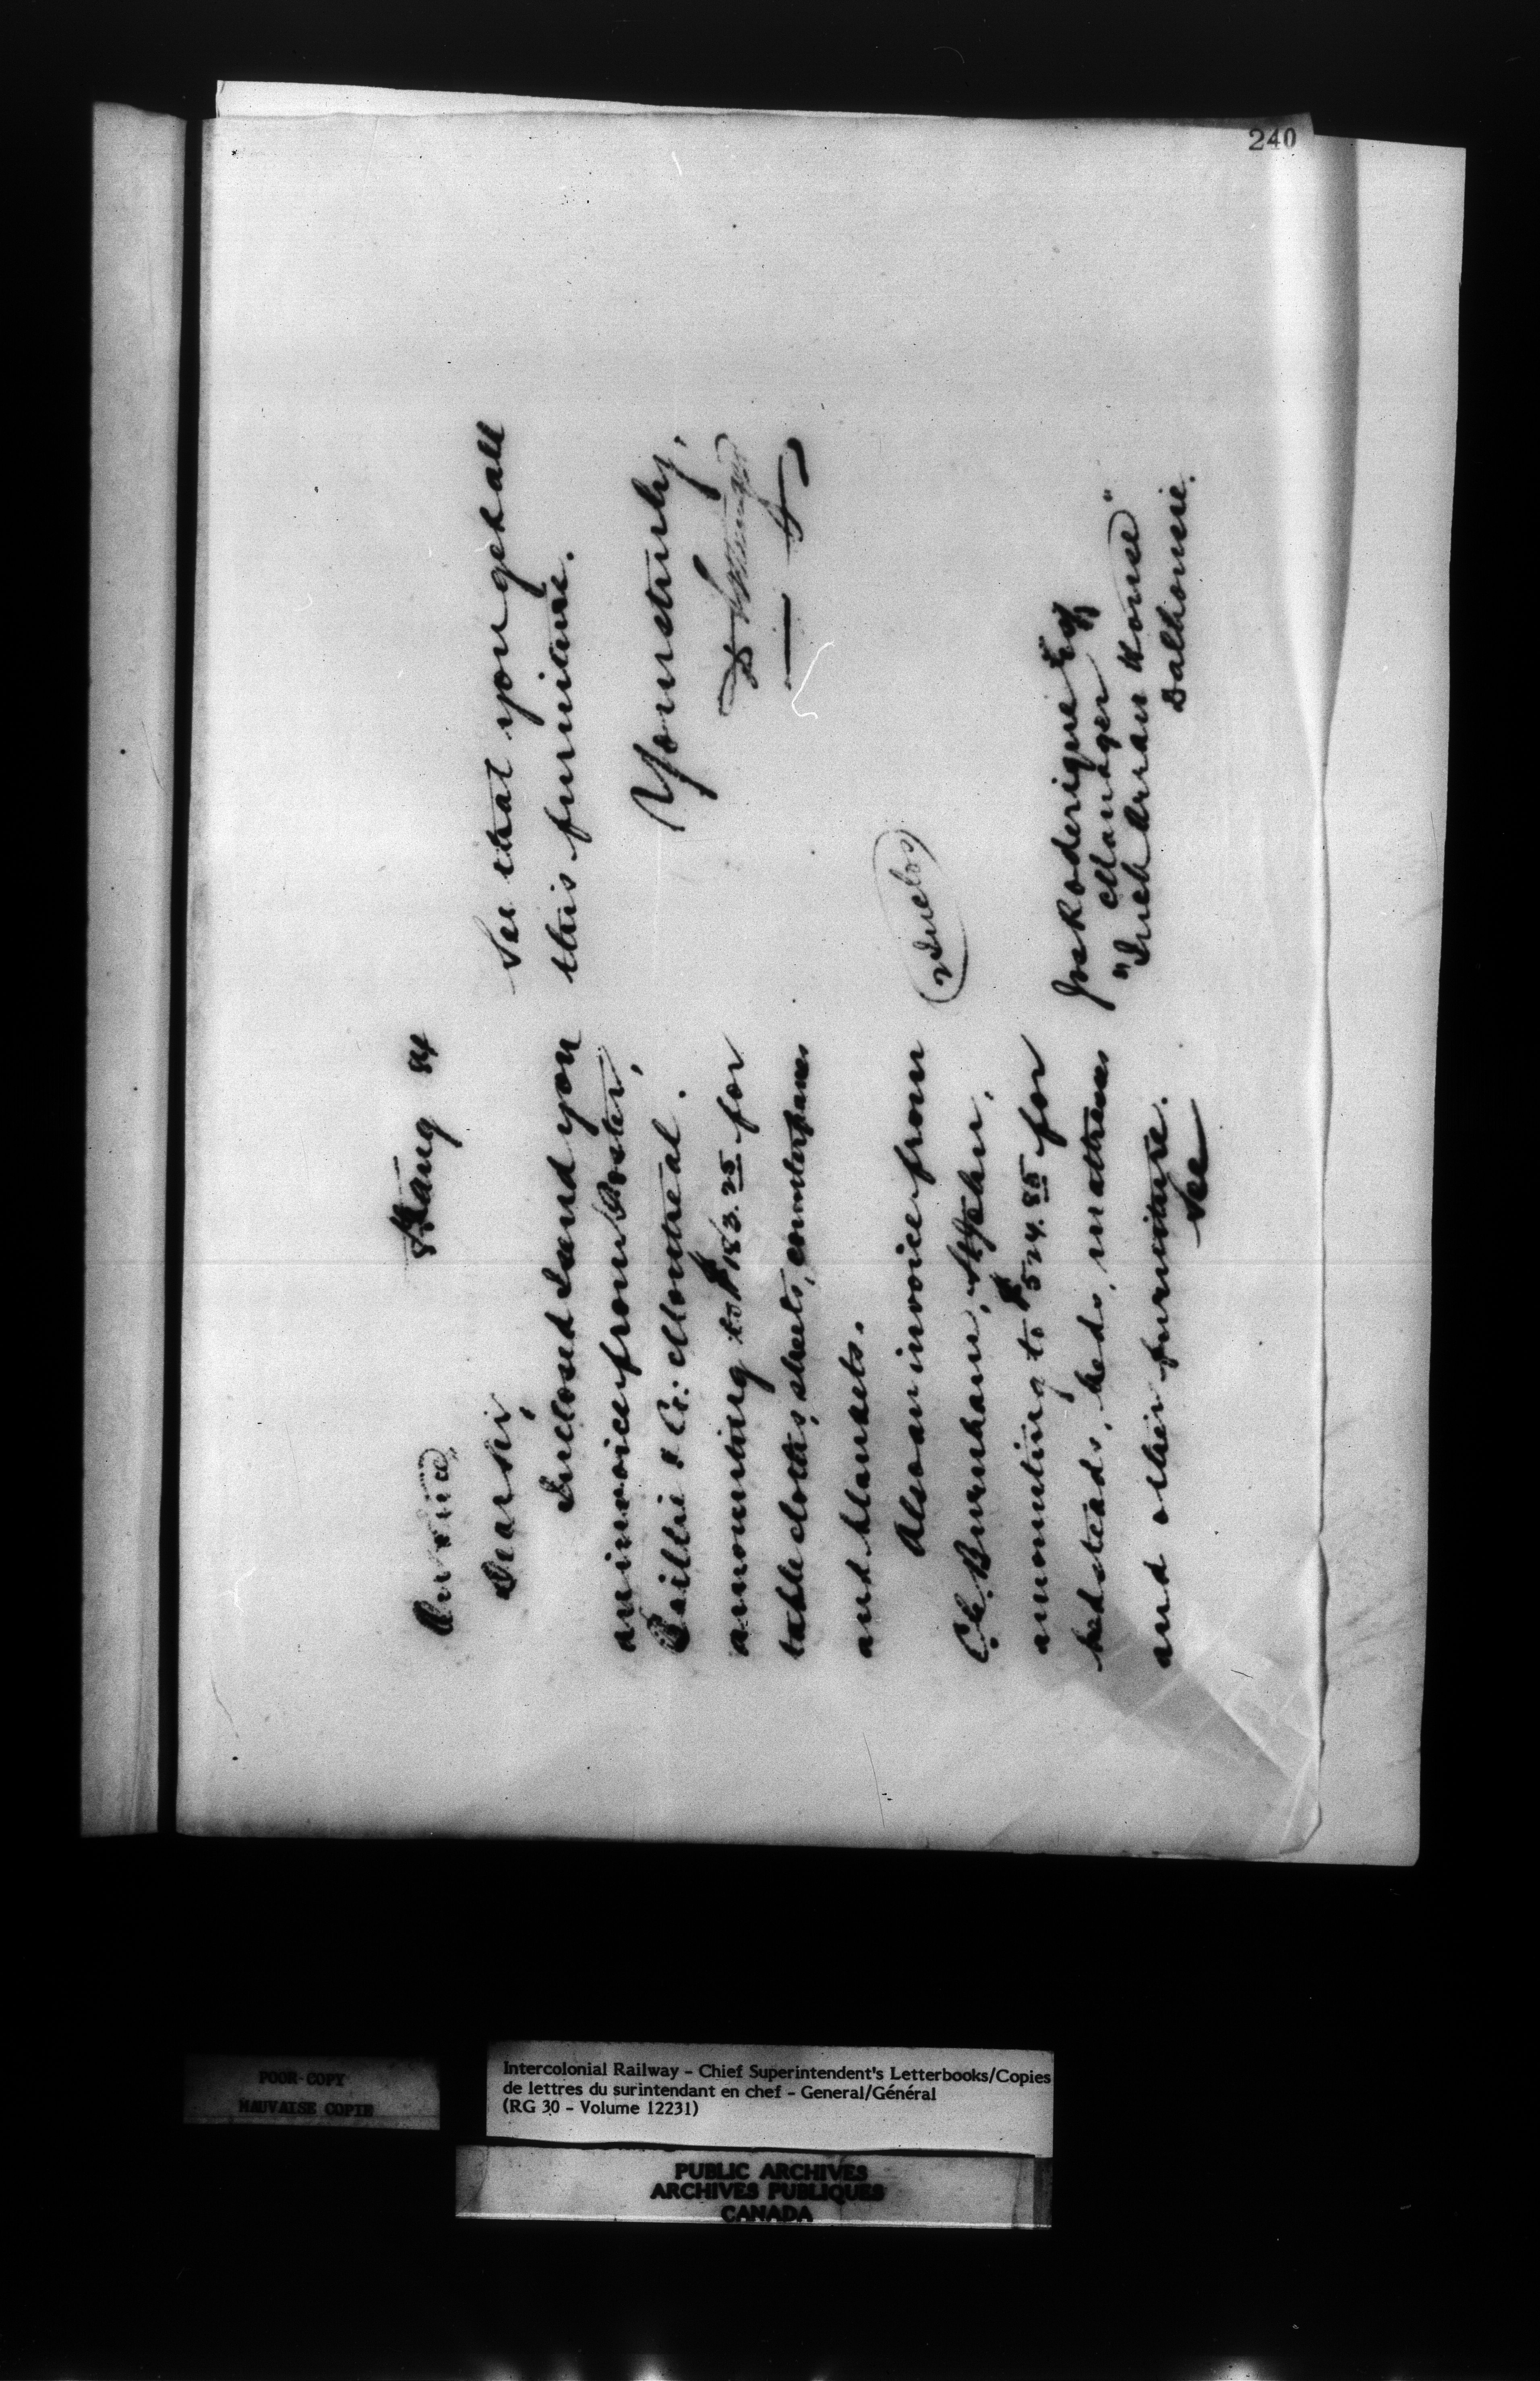 240
Aug 84
Dear Sir,
Inclosed I send you
an invoice from Foster,
Baillie & Co: Montreal.
amounting to $183.25 for
table cloths, sheets, counterpanes
and blankets.
Also an invoice from
C. E. Burnham, St John,
amounting to $524.85 for
bedsteads, beds, mattresses
and other furniture.
See
See that you get all
this furniture.
Yours truly,
D Pottinger
(2 Incls)
Jos Roderique Esq
Manager
"Inch Arran House"
Dalhousie.
POOR COPY
MAUVAISE COPIE
Intercolonial Railway - Chief Superintendent's Letterbooks/Copies
de lettres du surintendant en chef - General/Général
(RG 30 - Volume 12231)
PUBLIC ARCHIVES
ARCHIVES PUBLIQUES
CANADA